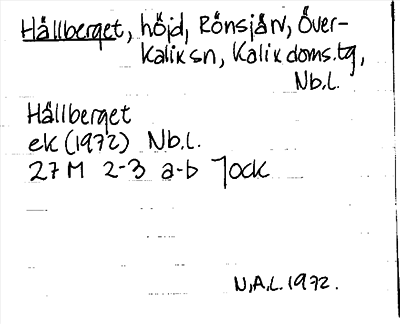 Hållberget, höjd, Rönsjärv, Över-
kalix sn, Kalix doms.tg,
Nb.l.
Hållberget
ek (1972) Nb.l.
27 M 2-3 a-b Jock
N.A.L. 1972.